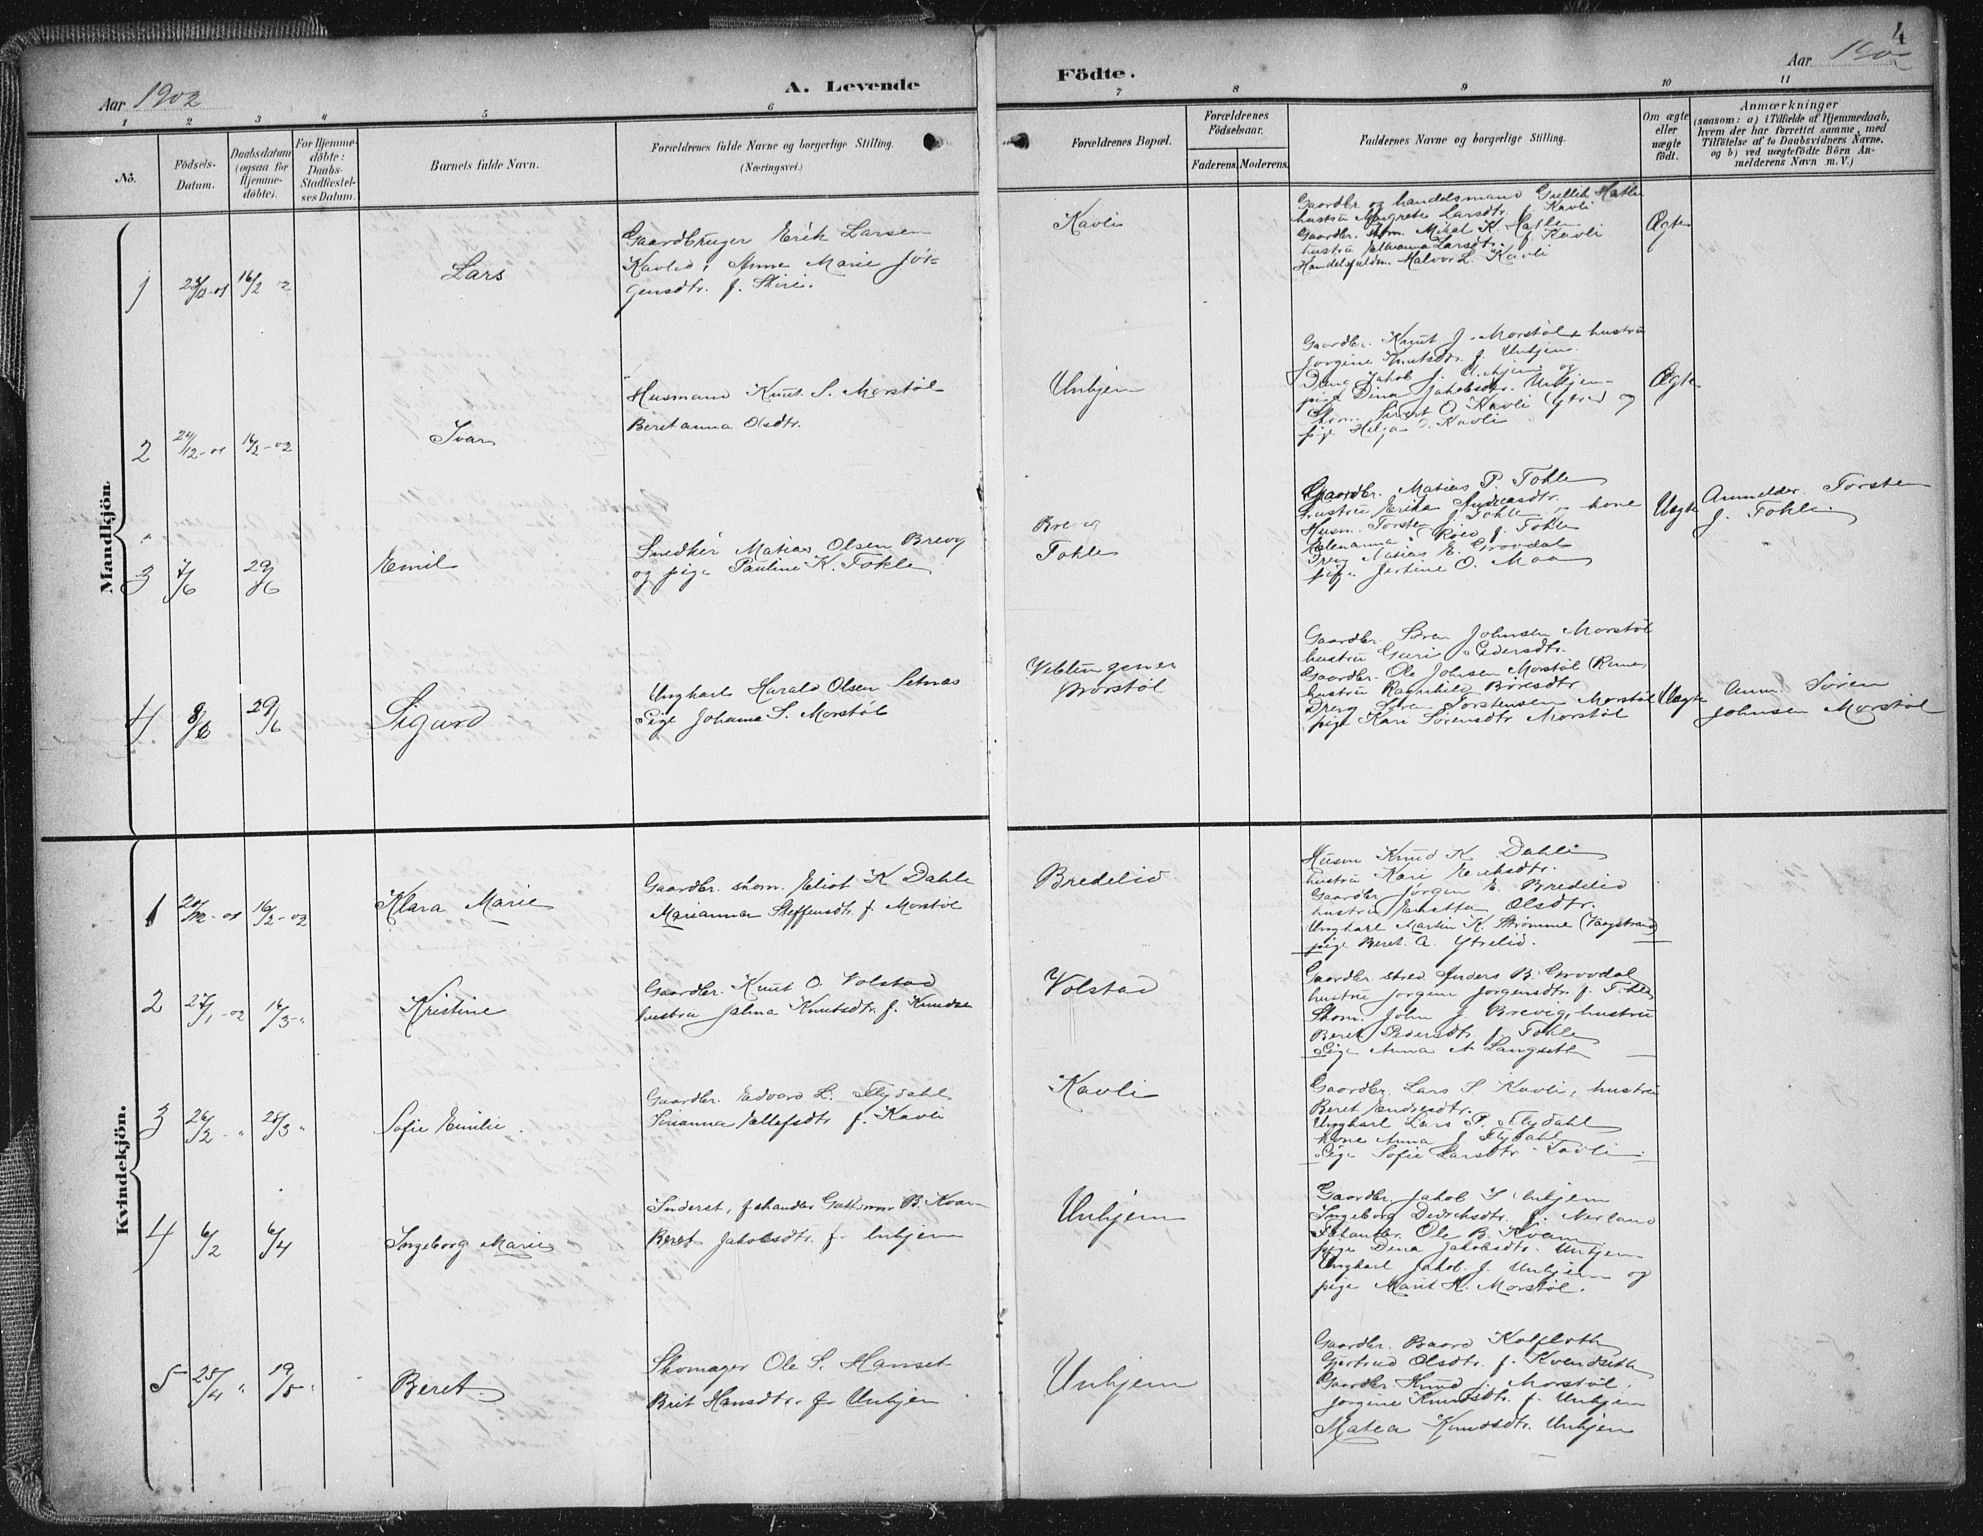 4
Aar 1902
A. Levende
Födte.
Aar 1902
1 2 3 4 5 6 7 8 9 10 11
No.
Födsels-
Datum.
Daabsdatum
(ogsaa för
Hjemme-
döbte).
For Hjemme-
döbte:
Daabs-
Stadfæstel-
ses Datum.
Barnets fulde Navn.
Forældrenes fulde Navne og borgerlige Stilling.
(Næringsvei.)
Forældrenes Bopæl.
Forældrenes
Födselsaar.
Faderens.
Moderens.
Faddernes Navne og borgerlige Stilling.
Om ægte
eller
uægte
födt.
Anmærkninger
(saasom: a) i Tilfælde af Hjemmedaab,
hvem der har forrettet samme, med
Tilföielse af to Daabsvidners Navne,
og b) ved uægtefödte Börn An-
melderens Navn m. V.)
Mandkjön.
1
16/2
Lars
Gaardbruger Erik Larsen
Kavli, Anne Marie Jör-
gensdtr. f. Skiri.
Kavli
Gaardbr. og handelsmand Hatle
hustru Margrete Larsdtr. f. Kavli
Gaardbr. Mikal K. Hatle
hustru Larsdtr. f. Kavli
Halvor L. Kavli
Ægte
2
24/12-01
16/2-02
Ivar
Husmand Knut S. Morstöl
Beretanna Olsdtr.
Unhjem
Gaardbr. Knut J. Morstöl hustru
Jorgine Knutsdtr. f. Unhjem.
Dreng Jakob J. Unhjem og
pige Dina Jakobsdtr. Unhjem
Sivert O. Kavli (ytre) og
pige Helga O. Kavli
Ægte
3
7/6
29/6
Emil
Snedker Matias Olsen Brevig
og pige Pauline K. Tokle
Brevig
Tokle
Gaardbr. Matias P. Tokle
hustru Erika Andreasdtr.
Husm. Torsten J. Tokle kone
Elenanna f. Tokle
Dreng Matias E. Grovdal
pige Jertine O. Maa
Uægte
Anmelder. Torsten
J. Tokle
4
8/6
29/6
Sigurd
Ungkarl Harald Olsen Setnæs
Pige Johanna S. Morstöl
Veblungsnes
Morstöl
Gaardbr. Sören Johnsen Morstöl
hustru Guri Pedersdtr.
Gaardbr. Ole Johnsen Morstöl
hustru Ragnhild
Dreng Sören Torstensen Morstöl
pige Kari Sörensdtr. Morstöl
Uægte
Anm. Sören
Johnsen Morstöl
Kvindekjön.
1
16/2-02
Klara Marie
Gaardbr. skom. Eliot K Dahle
Marianna Steffensdtr. f. Morstöl
Bredelid
Husm Knud K. Dahle
hustru Kari Eriksdtr.
Gaardbr. Jörgen E. Bredelid
hustru Olsdtr.
Ungkarl Martin K. Strömme (Vaagstrand)
pige Beret A. Ytrelid.
2
27/1-02
16/3 "
Kristine
Gaardbr. Knut O. Volstad
hustru Jalina Knutsdtr. f.
Volstad
Gaardbr. Anders B. Grovdal
hustru Jorgine Jörgensdtr. f. Tokle
Skom. John J. Brevig, hustru
Beret Pedersdtr. f. Tokle
Pige Anna Langset
3
26/2 "
28/3 "
Sofie Emilie
Gaardbr. Edvard L. Flydahl
Sirianna Ellefsdtr. f. Kavli
Kavli
Gaardbr. Lars S. Kavli, hustru
Beret Endresdtr.
Ungkarl Lars P. Flydahl
kone Anna J. Flydahl
Pige Sofie Larsdtr. Kavli
4
6/2
6/4
Ingeborg Marie
Inderst, B. Kvam
Beret Jakobsdtr. f. Unhjem
Unhjem
Gaardbr. Jakob S. Unhjem
Ingeborg f. Nerland
Ole B. Kvam
pige Dina Jakobsdtr. Unhjem
Ungkarl Jakob J. Unhjem og
pige Marit K. Morstöl.
5
25/4 "
19/5 "
Beret.
Skomager Ole S. Hanset
Brit Hansdtr. f. Unhjem
Unhjem
Gaardbr. Baard Kolfloth
Gjertrud Olsdtr. f.
Gaardbr. Knud J. Morstöl.
Jorgine Knudsdtr. f. Unhjem
Matea Knudsdtr. Unhjem